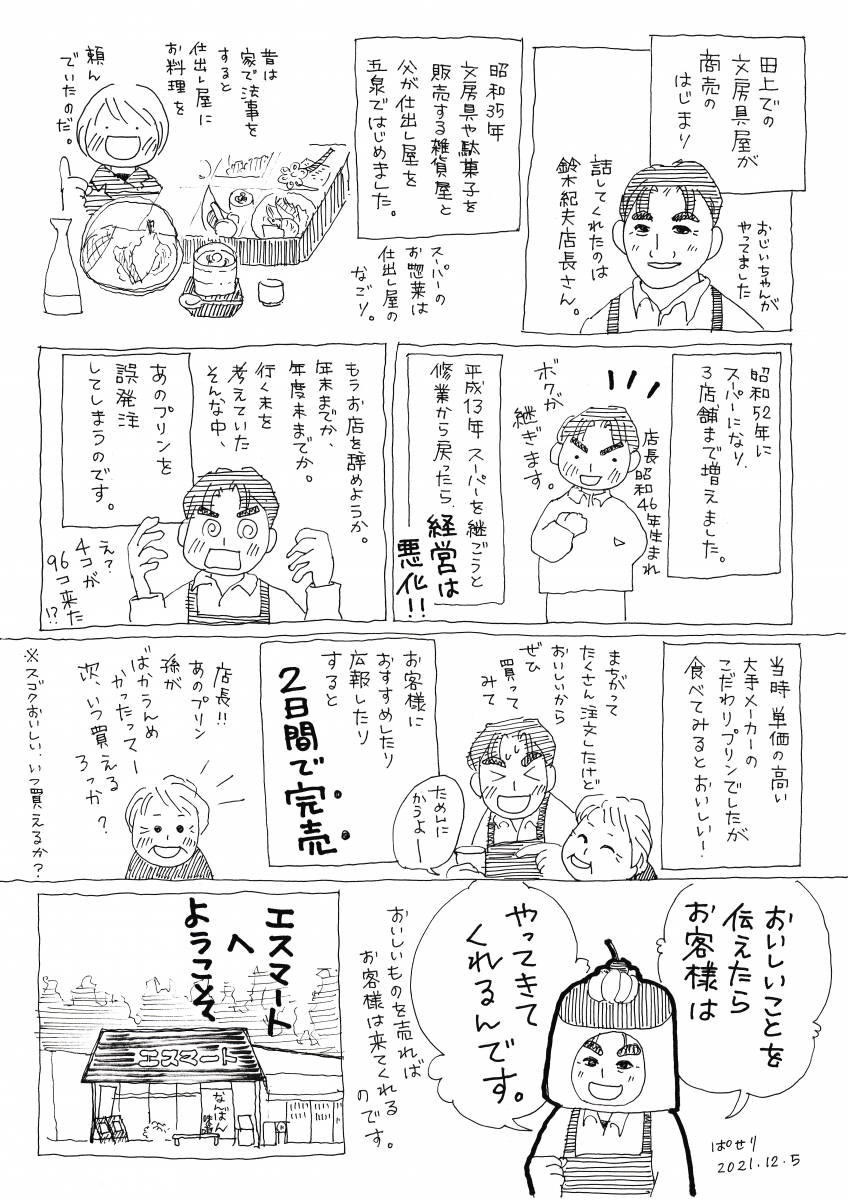 田上での
文房具屋が
商売の
はじまり
おじいちゃんが
やってました
話してくれたのは
鈴木紀夫店長さん。
昭和35年
文房具や駄菓子を
販売する雑貨屋と
父が仕出し屋を
五泉ではじめました。
スーパーの
お惣菜は
仕出し屋の
なごり。
昔は
家で法事を
すると
仕出し屋に
お料理を
頼ん
でいたのだ。
昭和52年に
スーパーになり、
3店舗まで増えました。
店長昭和46年生まれ
ボクが
継ぎます。
平成13年スーパーを継ごうと
修業から戻ったら、
経営は
悪化!!
もうお店を辞めようか。
年末までか、
年度末までか。
行く末を
考えていた
そんな中、
あのプリンを
誤発注
してしまうのです。
え?
4コが
96コ来た
!?
当時単価の高い
大手メーカーの
こだわりプリンでしたが
食べてみるとおいしい!
まちがって
たくさん注文したけど
おいしいから
ぜひ
買って
みて
ためんに
かうよー
お客様に
おすすめしたり
広報したり
すると
2日間で完売。
店長!!
あのプリン
孫が
ばかうんめ
かったってー
次、いつ買える
ろっか?
※スゴクおいしい、いつ買えるか?
おいしいことを
伝えたら
お客様は
やってきて
くれるんです。
おいしいものを売れば
お客様は来てくれる
のです。
エスマート
へ
ようこそ
エスマート
なんばん
ぱせり
2021.12.5